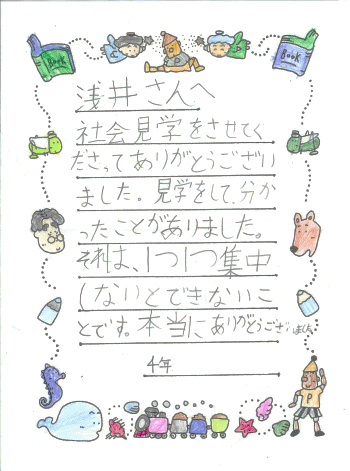 Book
Book
P
浅井さんへ
社会見学をさせてく
ださってありがとうござい
ました。見学をして、分か
ったことがありました。
それは、1つ1つ集中
しないとできないこ
とです。本当にありがとうございました。
4年
P